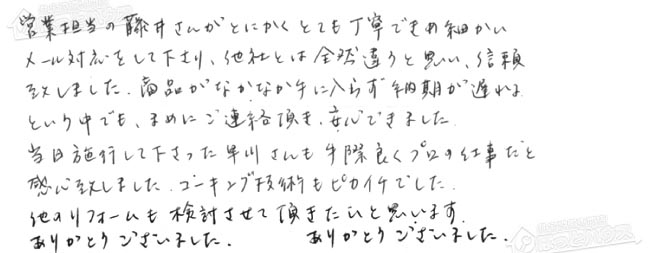 営業担当の藤井さんがとにかくとても丁寧できめ細かい
メール対応をして下さり、他社とは全然違うと思い、信頼
致しました。商品がなかなか手に入らず納期が遅れる
という中でも、まめにご連絡頂き、安心できました。
当日施行して下さった早川さんも手際良くプロの仕事だと
感心致しました。コーキング技術もピカイチでした。
他のリフォームも検討させて頂きたいと思います。
ありがとうございました。 ありがとうございました。